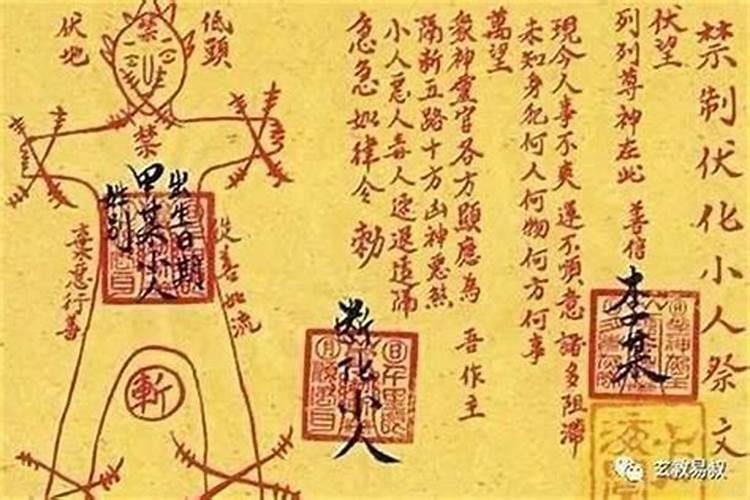 禁制伏化小人祭文
伏望
列列尊神在此 善信
李某
現今人事不爽 運不順意 諸多阻滯
未知身犯何人何物何方何事
萬望
眾神靈官各方顯應為 吾作主
隔斬五路十方凶神惡煞
小人惡人毒人速退遠隔
急急如律令 勅
斷化小人
低頭
伏地
禁
禁
出生日期
甲某小人
姓別
從善如流
棄惡行善
斬
玄教易叔